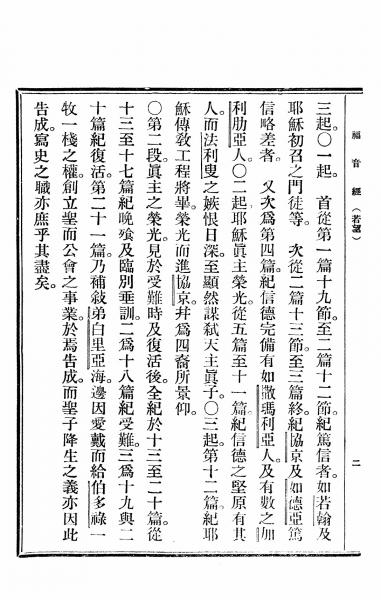 福音經（若望）
二
三起。〇一起　首從第一篇十九節至二篇十二節。紀篤信者。如若翰及
耶穌初召之門徒等　次從二篇十三節至三篇終。紀協京及如德亞篤
信略差者　又次為第四篇。紀信德完備。有如撒瑪利亞人及有數之加
利肋亞人。〇二起耶穌眞主榮光。從五篇至十一篇。紀信德之堅原有其
人。而法利叟之嫉恨日深。至顯然謀弒天主眞子。〇三起。第十二篇。紀耶
穌傳敎工程將畢。榮光而進協京。幷為四裔所景仰。
〇第二段。眞主之榮光。見於受難時及復活後。全紀於十三至二十篇。從
十三至十七篇。紀晚飧及臨別垂訓。二為十八篇紀受難。三為十九與二
十篇紀復活。第二十一篇。乃補敍弟白里亞海。邊因愛戴而給伯多祿一
牧一棧之權。創立聖而公會之事業。於焉告成。而聖子降生之義。亦因此
告成。寫史之職亦庶乎其盡矣。